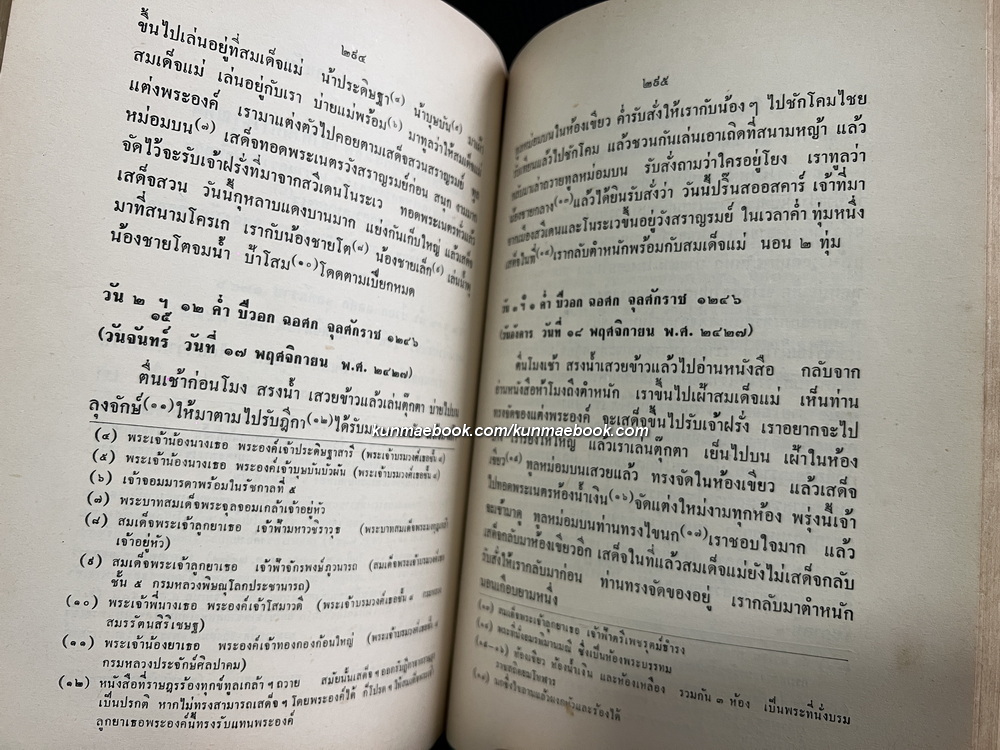 ๒๙๔
ขึ้นไปเล่นอยู่ที่สมเด็จแม่ น้าประดิษฐา(๔) น้าบุษบัน(๕) มาเฝ้า
สมเด็จแม่ เล่นอยู่กับเรา บ่ายแม่พร้อม(๖) มาทูลว่าให้สมเด็จแม่
แต่งพระองค์ เรามาแต่งตัวไปคอยตามเสด็จสวนสราญรมย์ ทูล
หม่อมบน(๗) เสด็จทอดพระเนตรวังสราญรมย์ก่อน สนุก งามมาก
จัดไว้จะรับเจ้าฝรั่งที่มาจากสวีเดนโนระเว ทอดพระเนตรทั่วแล้ว
เสด็จสวน วันนี้กุหลาบแดงบานมาก แย่งกันเก็บใหญ่ แล้วเสด็จ
มาที่สนามโครเก เรากับน้องชายโต(๘) น้องชายเล็ก(๙) เล่นน้ำพุ
น้องชายโตจมน้ำ ป้าโสม(๑๐) โดดตามเปียกหมด
วัน ๒ ฯ ๑๒ ค่ำ ปีวอก ฉอศก จุลศักราช ๑๒๔๖
๑๕
(วันจันทร์ วันที่ ๑๗ พฤศจิกายน พ.ศ. ๒๔๒๗)
ตื่นเช้าก่อนโมง สรงน้ำ เสวยข้าวแล้วเล่นตุ๊กตา บ่ายไปบน
ลุงจักษ์(๑๑) ให้มาตามไปรับฎีกา(๑๒) ได้รับ
(๔) พระเจ้าน้องนางเธอ พระองค์เจ้าประดิษฐาสารี (พระเจ้าบรมวงศ์เธอชั้น ๔)
(๕) พระเจ้าน้องนางเธอ พระองค์เจ้าบุษบันบัวผัน (พระเจ้าบรมวงศ์เธอชั้น ๔)
(๖) เจ้าจอมมารดาพร้อมในรัชกาลที่ ๕
(๗) พระบาทสมเด็จพระจุลจอมเกล้าเจ้าอยู่หัว
(๘) สมเด็จพระเจ้าลูกยาเธอ เจ้าฟ้ามหาวชิราวุธ (พระบาทสมเด็จพระมงกุฎเกล้า
เจ้าอยู่หัว)
(๙) สมเด็จพระเจ้าลูกยาเธอ เจ้าฟ้าจักรพงษ์ภูวนารถ (สมเด็จพระเจ้าบรมวงศ์เธอ
ชั้น ๕ กรมหลวงพิษณุโลกประชานารถ)
(๑๐) พระเจ้าพี่นางเธอ พระองค์เจ้าโสมาวดี (พระเจ้าบรมวงศ์เธอชั้น ๔ กรมหลวง
สมรรัตนสิริเชษฐ)
(๑๑) พระเจ้าน้องยาเธอ พระองค์เจ้าทองกองก้อนใหญ่ (พระเจ้าบรมวงศ์เธอชั้น ๔
กรมหลวงประจักษ์ศิลปาคม)
(๑๒) หนังสือที่ราษฎรร้องทุกข์ทูลเกล้าฯ ถวาย สมัยนั้นเสด็จฯ ออกรับฎีกา
เป็นปรกติ หากไม่ทรงสามารถเสด็จฯ โดยพระองค์ได้ ก็โปรดฯ ให้สมเด็จพระเจ้า
ลูกยาเธอพระองค์นี้ทรงรับแทนพระองค์
๒๙๕
ทูลหม่อมบนในห้องเขียว ค่ำรับสั่งให้เรากับน้อง ๆ ไปชักโคมไชย
แล้วไปชักโคม แล้วชวนกันเล่นเอาเถิดที่สนามหญ้า แล้ว
ทูลหม่อมบน รับสั่งถามว่าใครอยู่โยง เราทูลว่า
น้องชายกลาง(๑๓) แล้วได้ยินรับสั่งว่า วันนี้ปริ๊นสออสคาร์ เจ้าที่มา
จากเมืองสวีเดนและโนระเวขึ้นอยู่วังสราญรมย์ ในเวลาค่ำ ทุ่มหนึ่ง
เสด็จในที่(๑๔) เรากลับตำหนักพร้อมกับสมเด็จแม่ นอน ๒ ทุ่ม
วัน ๑ ฯ ๑ ค่ำ ปีวอก ฉอศก จุลศักราช ๑๒๔๖
(วันอังคาร วันที่ ๑๘ พฤศจิกายน พ.ศ. ๒๔๒๗)
ตื่นโมงเช้า สรงน้ำเสวยข้าวแล้วไปอ่านหนังสือ กลับจาก
อ่านหนังสือห้าโมงถึงตำหนัก เราขึ้นไปเฝ้าสมเด็จแม่ เห็นท่าน
ทรงจัดของแต่งพระองค์ จะเสด็จขึ้นไปรับเจ้าฝรั่ง เราอยากจะไป
เราร้องไห้ใหญ่ แล้วเราเล่นตุ๊กตา เย็นไปบน เฝ้าในห้อง
เขียว(๑๕) ทูลหม่อมบนเสวยแล้ว ทรงจัดในห้องเขียว แล้วเสด็จ
ไปทอดพระเนตรห้องน้ำเงิน(๑๖) จัดแต่งใหม่งามทุกห้อง พรุ่งนี้เจ้า
จะเข้ามาดู ทูลหม่อมบนท่านทรงไขนก(๑๗) เราชอบใจมาก แล้ว
เสด็จกลับมาห้องเขียวอีก เสด็จในที่แล้วสมเด็จแม่ยังไม่เสด็จกลับ
รับสั่งให้เรากลับมาก่อน ท่านทรงจัดของอยู่ เรากลับมาตำหนัก
นอนเกือบยามหนึ่ง
(๑๓) สมเด็จพระเจ้าลูกยาเธอ เจ้าฟ้าตรีเพชรุตม์ธำรง
(๑๔) พระที่นั่งอมรพิมานมณี ซึ่งเป็นห้องพระบรรทม
(๑๕-๑๖) ห้องเขียว ห้องน้ำเงิน และห้องเหลือง รวมกัน ๓ ห้อง เป็นพระที่นั่งบรม
ราชสถิตยมโหฬาร
(๑๗) นกซึ่งไขลานแล้วผงกหัวและร้องได้
kunmaebook.com/kunmaebook.com